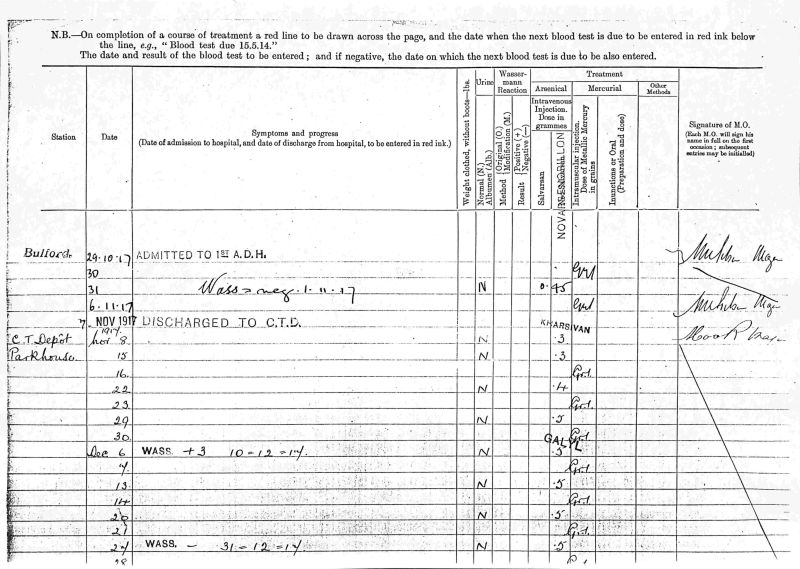 N.B.—On completion of a course of treatment a red line to be drawn across the page, and the date when the next blood test is due to be entered in red ink below
the line, e.g., "Blood test due 15.5.14."
The date and result of the blood test to be entered; and if negative, the date on which the next blood test is due to be also entered.
Station
Date
Symptoms and progress
(Date of admission to hospital, and date of discharge from hospital, to be entered in red ink.)
Weight clothed, without boots—lbs.
Urine
Normal (N.)
Albumen (Alb.)
Wasser-
mann
Reaction
Method { Original (O.)
Modification (M.)
Result { Positive (+)
Negative (—)
Treatment
Arsenical
Intravenous
Injection.
Dose in
grammes
Salvarsan
Mercurial
Intramuscular injection.
Dose of Metallic Mercury
in grains
Inunctions or Oral
(Preparation and dose)
Other
Methods
Signature of M.O.
(Each M.O. will sign his
name in full on the first
occasion; subsequent
entries may be initialled)
Bulford. 29.10.17 ADMITTED TO 1ST A.D.H.
30
31 Wass = neg. 1.11.17 N 0.45
6.11.17
7 NOV 1917 DISCHARGED TO C.T.D. KHARSIVAN
1917.
C.T. Depôt Nov. 8 N .3
Parkhouse. 15 N .3
16. Gr1.
22 N .4
23 Gr1.
29 N .5
30. Gr1.
GALYL
Dec 6 WASS. +3 10=12=17. N .5
7 Gr1.
13 N .5
14 Gr1.
20 N .5
21 Gr1.
27 WASS. — 31=12=17 N .5
28